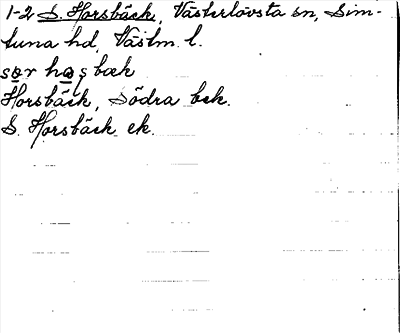 1-2 S. Horsbäck, Västerlövsta sn, Sim-
tuna hd, Västm. l.
sør hɑs̩bæk
Horsbäck, Södra bek.
S. Horsbäck ek.